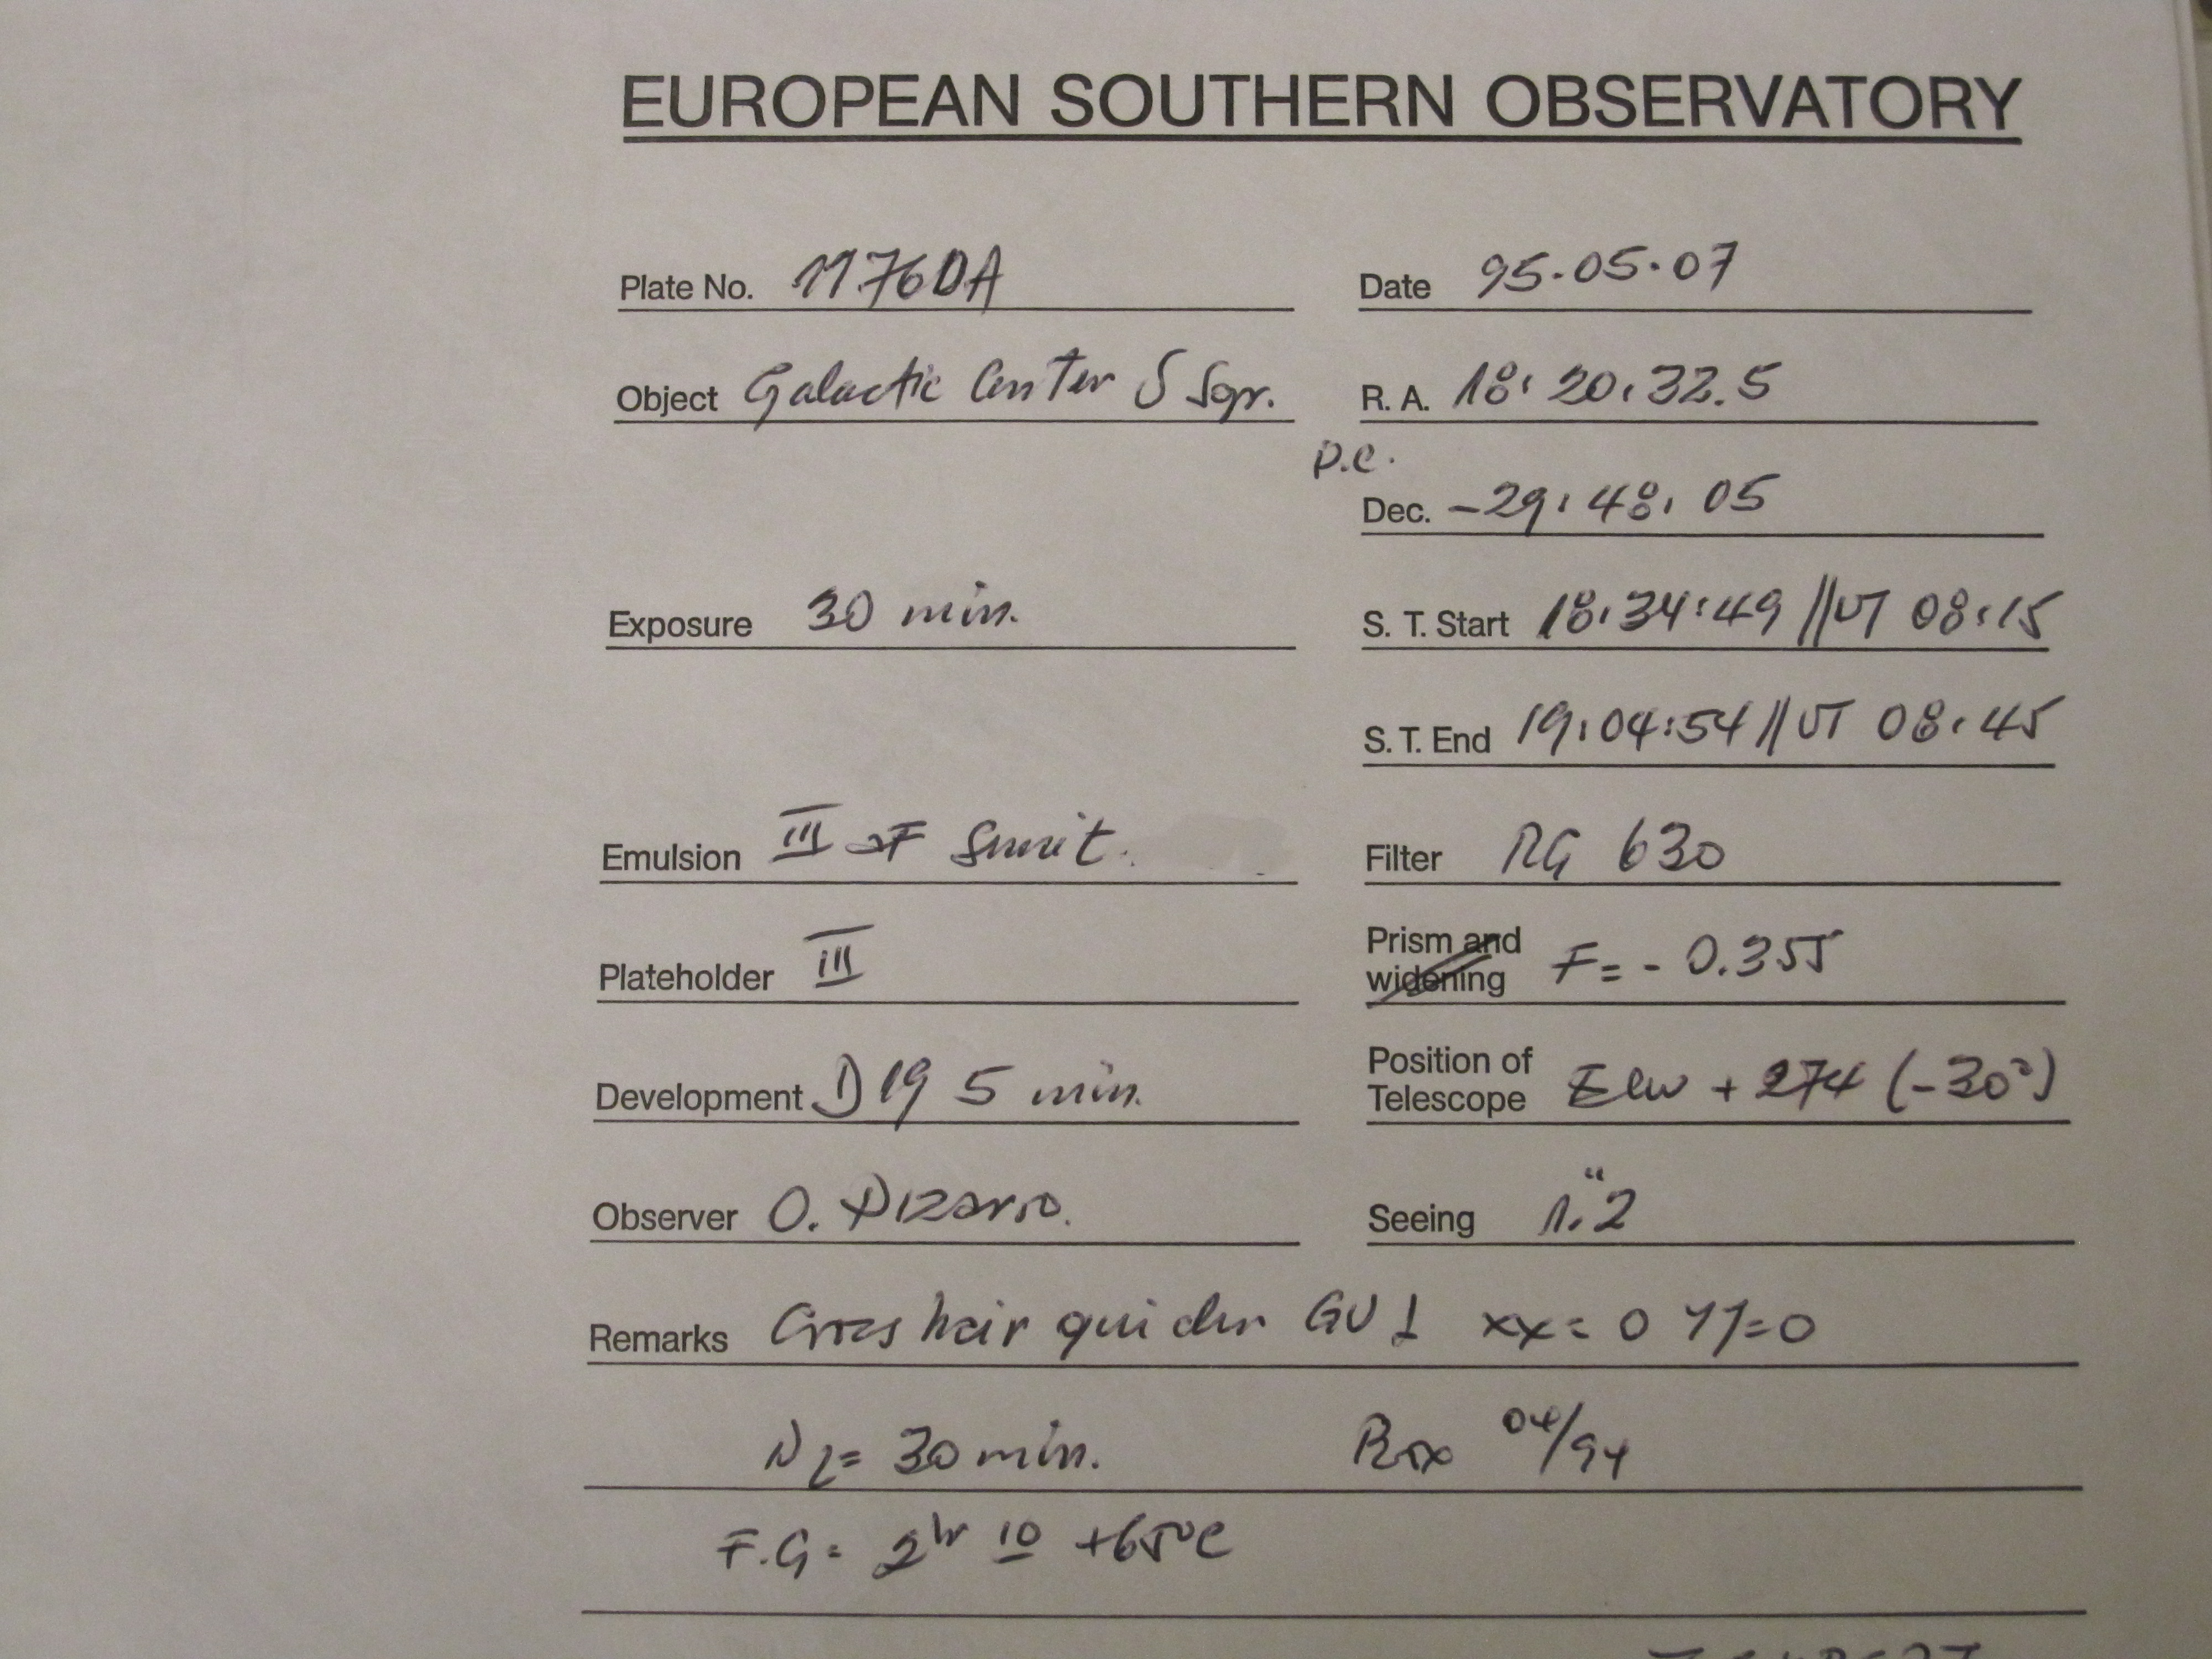 EUROPEAN SOUTHERN OBSERVATORY
Plate No. 11760A Date 95.05.07
Object Galactic Center δ Sgr. R. A. 18:20:32.5
p.c.
Dec. -29:48:05
Exposure 30 min. S. T. Start 18:34:49 // UT 08:15
S. T. End 19:04:54 // UT 08:45
Emulsion III aF Filter RG 630
Plateholder III Prism and widening F= - 0.355
Development D19 5 min. Position of Telescope + 274 (-30°)
Observer O. Pizarro. Seeing 1."2
Remarks Cross hair guider GU 1 xx= 0 YY=0
N2= 30 min. Box 04/94
F.G= 2hr 10 +65°C